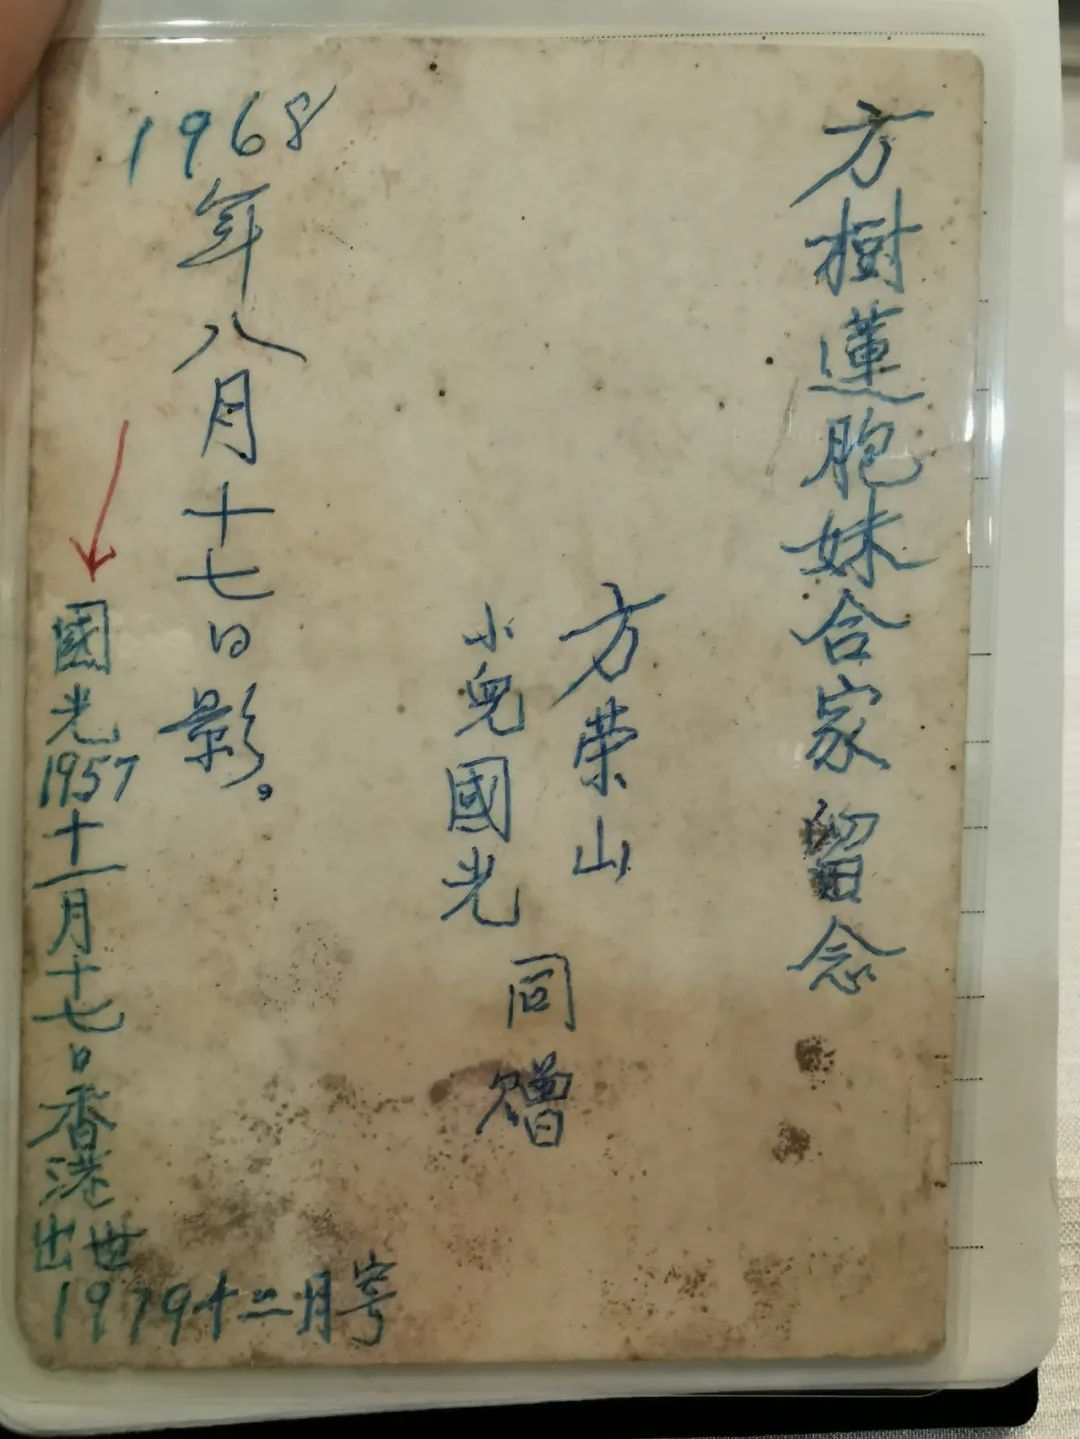 方樹蓮胞妹合家留念
方荣山
小兒國光
同贈
1968年八月十七日影。
國光1957十一月十七日香港出世
1979十二月寄